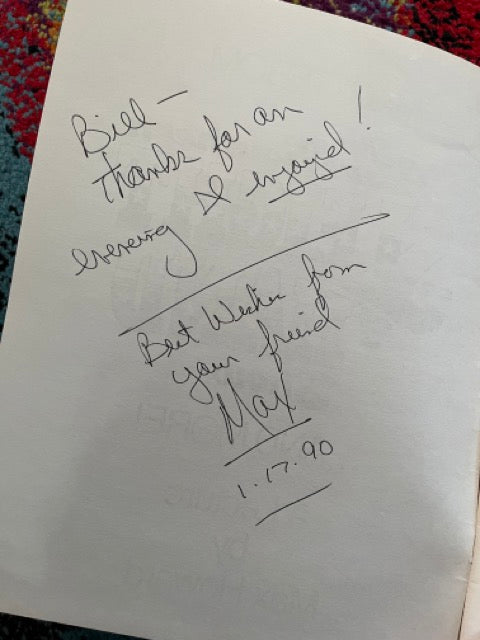 Bill —
thanks for an
evening I enjoyed!
Best Wishes from
your friend
Max
1.17.90